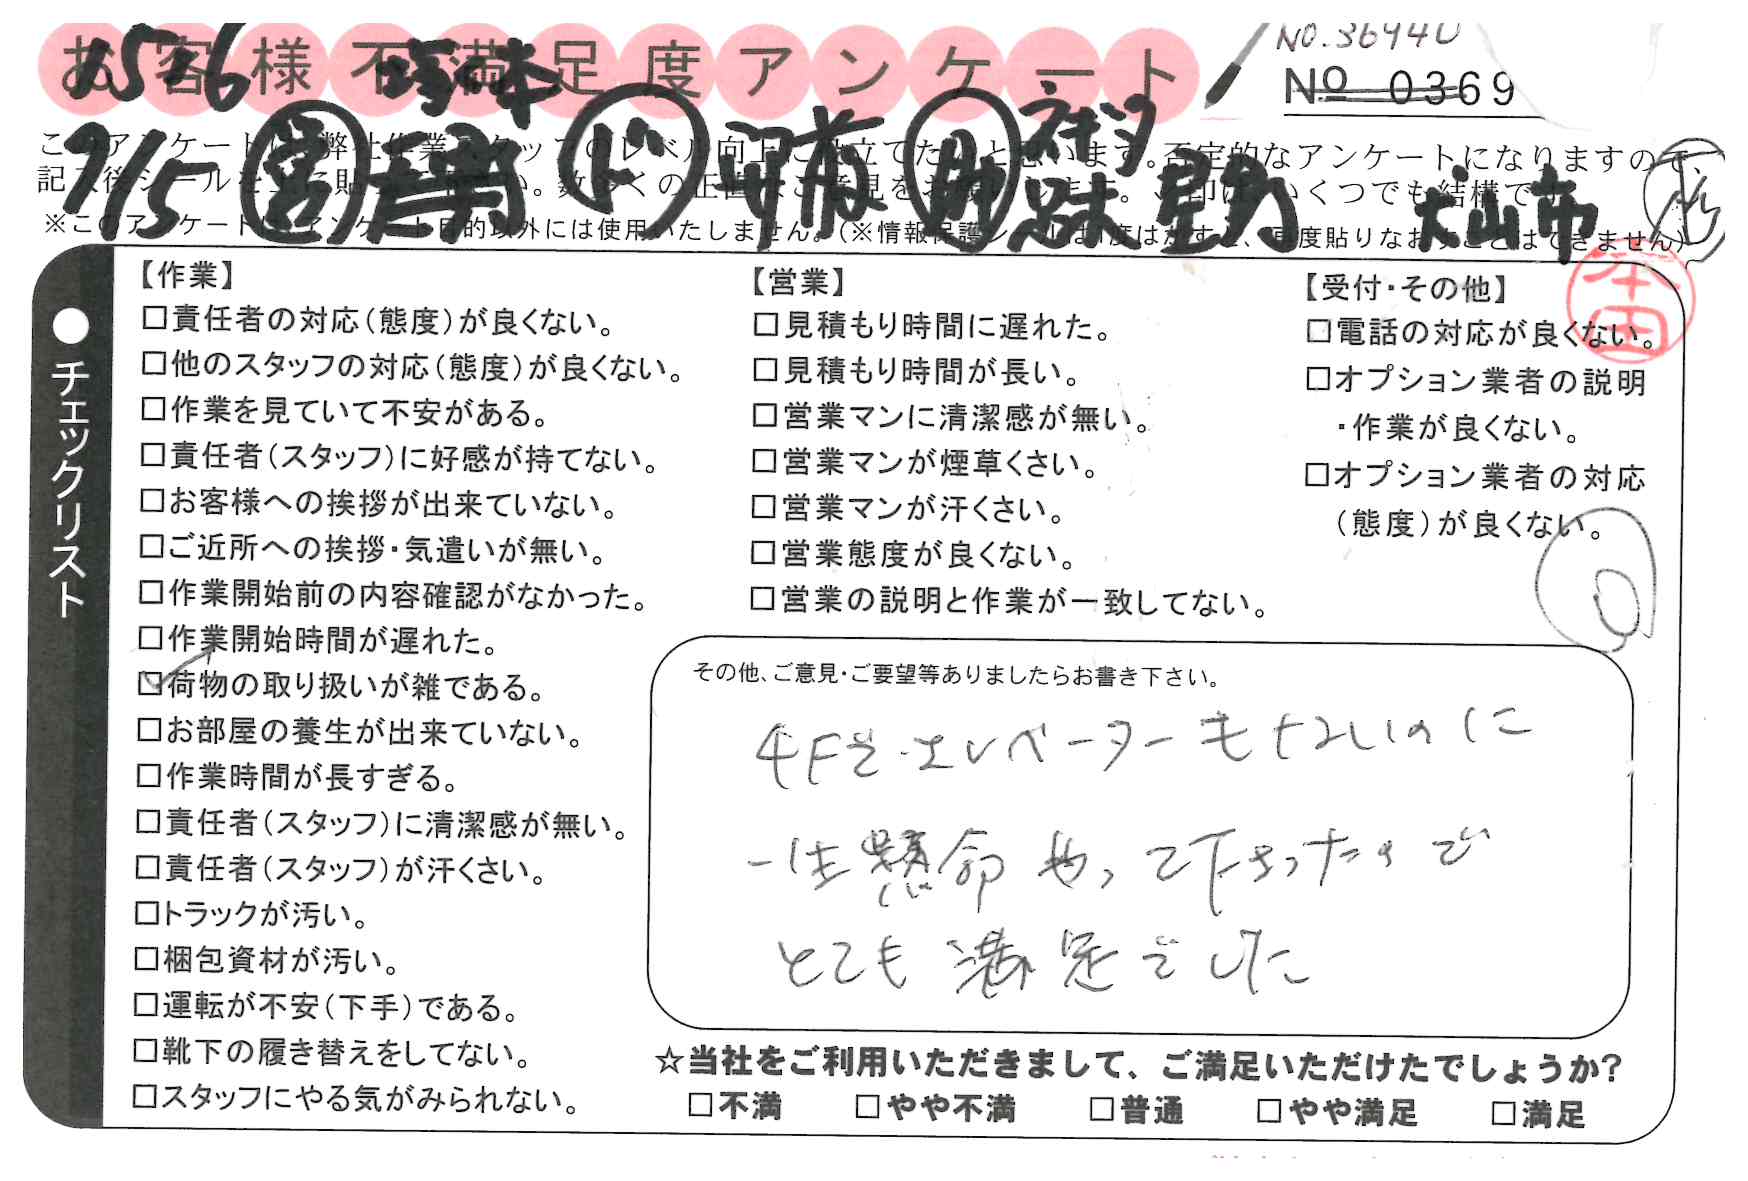 お客様不満足度アンケート
NO.36940
№ 0369
1576
7/15 営 ド 助 犬山市
このアンケートは、弊社作業スタッフのレベル向上に役立てたいと思います。否定的なアンケートになりますので、
記入後シールを上に貼って下さい。数多くの正直なご意見をお願いします。いくつでも結構です
※このアンケートは、アンケート目的以外には使用いたしません。(※情報保護シールは1度はがすと、再度貼りなおすことはできません)
本田
●チェックリスト
【作業】
□責任者の対応(態度)が良くない。
□他のスタッフの対応(態度)が良くない。
□作業を見ていて不安がある。
□責任者(スタッフ)に好感が持てない。
□お客様への挨拶が出来ていない。
□ご近所への挨拶・気遣いが無い。
□作業開始前の内容確認がなかった。
□作業開始時間が遅れた。
☑荷物の取り扱いが雑である。
□お部屋の養生が出来ていない。
□作業時間が長すぎる。
□責任者(スタッフ)に清潔感が無い。
□責任者(スタッフ)が汗くさい。
□トラックが汚い。
□梱包資材が汚い。
□運転が不安(下手)である。
□靴下の履き替えをしてない。
□スタッフにやる気がみられない。
【営業】
□見積もり時間に遅れた。
□見積もり時間が長い。
□営業マンに清潔感が無い。
□営業マンが煙草くさい。
□営業マンが汗くさい。
□営業態度が良くない。
□営業の説明と作業が一致してない。
【受付・その他】
□電話の対応が良くない。
□オプション業者の説明
・作業が良くない。
□オプション業者の対応
(態度)が良くない。
その他、ご意見・ご要望等ありましたらお書き下さい。
4Fで、エレベーターもないのに
一生懸命やって下さったので
とても満足でした
☆当社をご利用いただきまして、ご満足いただけたでしょうか?
□不満 □やや不満 □普通 □やや満足 □満足